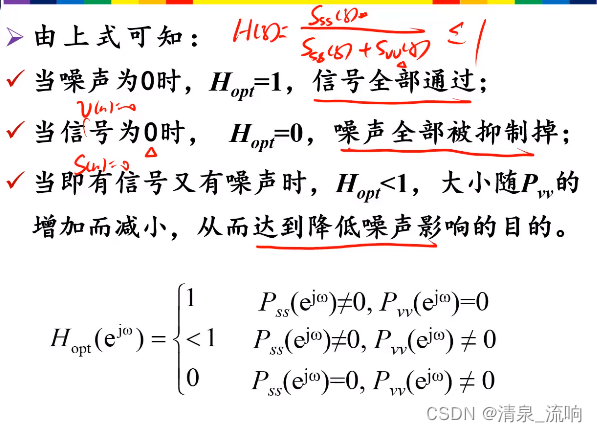 由上式可知： H(z)= Sss(z) / Sss(z) + Svv(z) ≤ 1
✓ 当噪声为0时，Hopt=1，信号全部通过；
v(n)=0
✓ 当信号为0时， Hopt=0，噪声全部被抑制掉；
s(n)=0
✓ 当即有信号又有噪声时，Hopt<1，大小随Pvv的
增加而减小，从而达到降低噪声影响的目的。
1 Pss(e^jω)≠0, Pvv(e^jω)=0
Hopt(e^jω) = { <1 Pss(e^jω)≠0, Pvv(e^jω) ≠ 0
0 Pss(e^jω)=0, Pvv(e^jω) ≠ 0
CSDN @清泉_流响